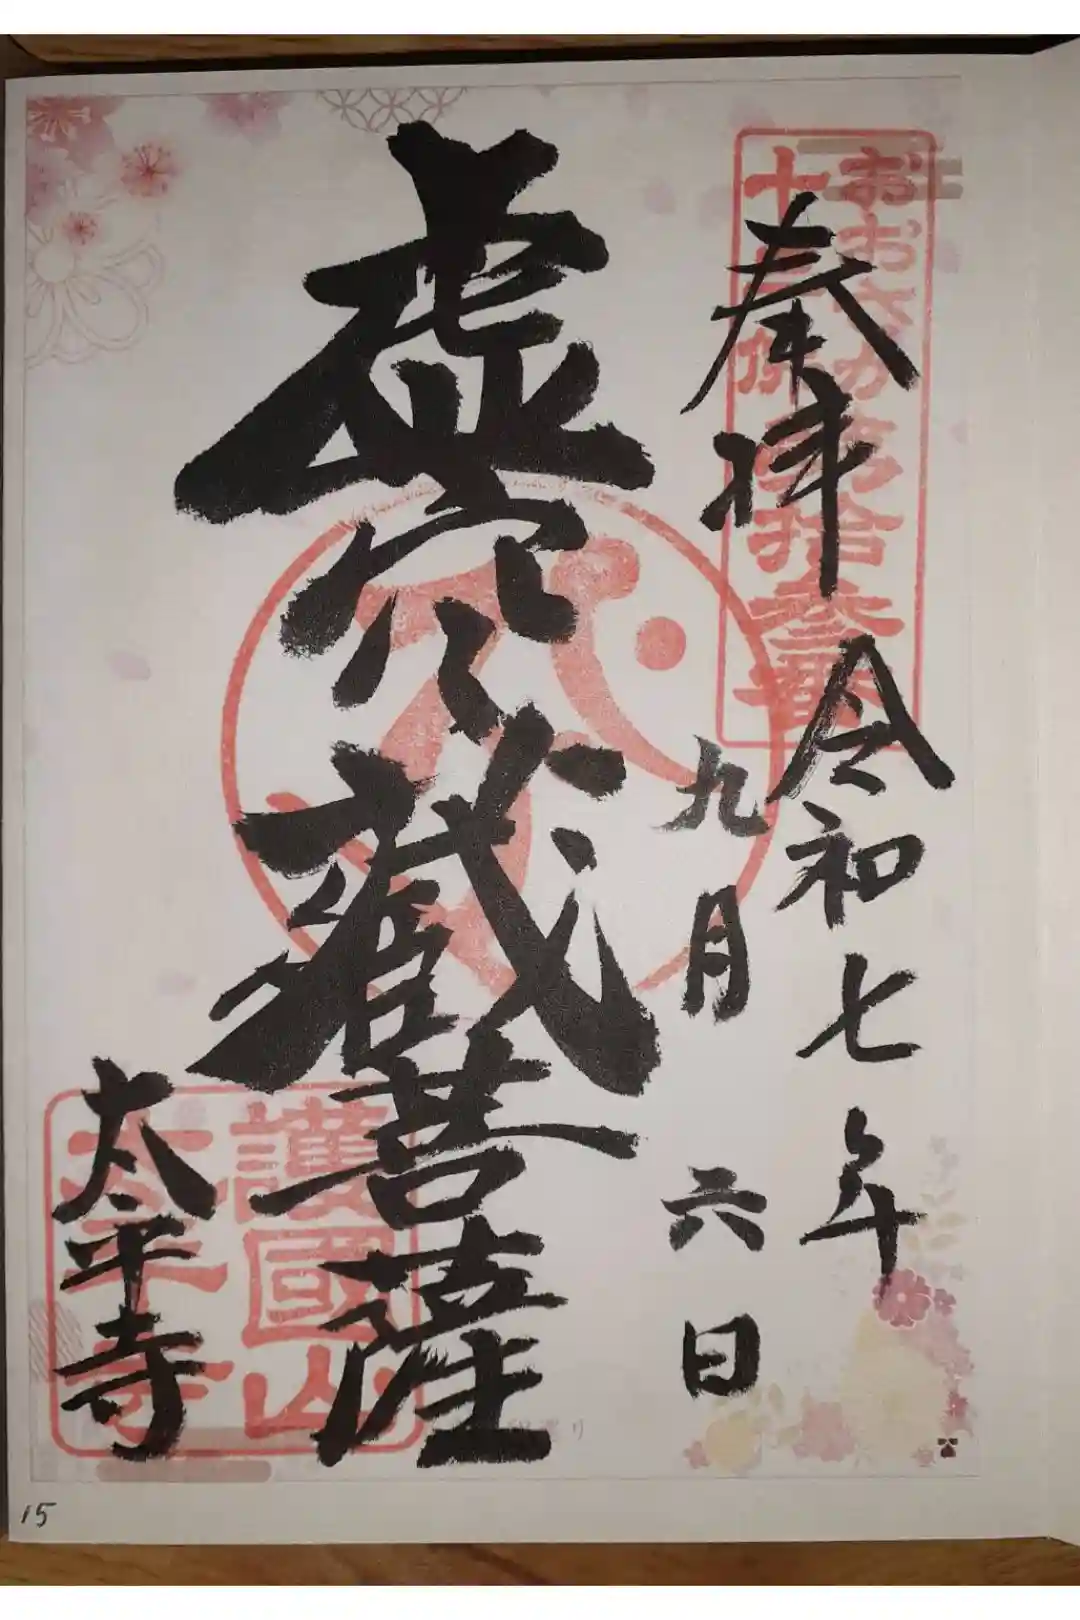 おおさか
十三佛第拾参番
奉拝
令和七年
九月六日
虚空蔵菩薩
護國山
太平寺
太平寺
15